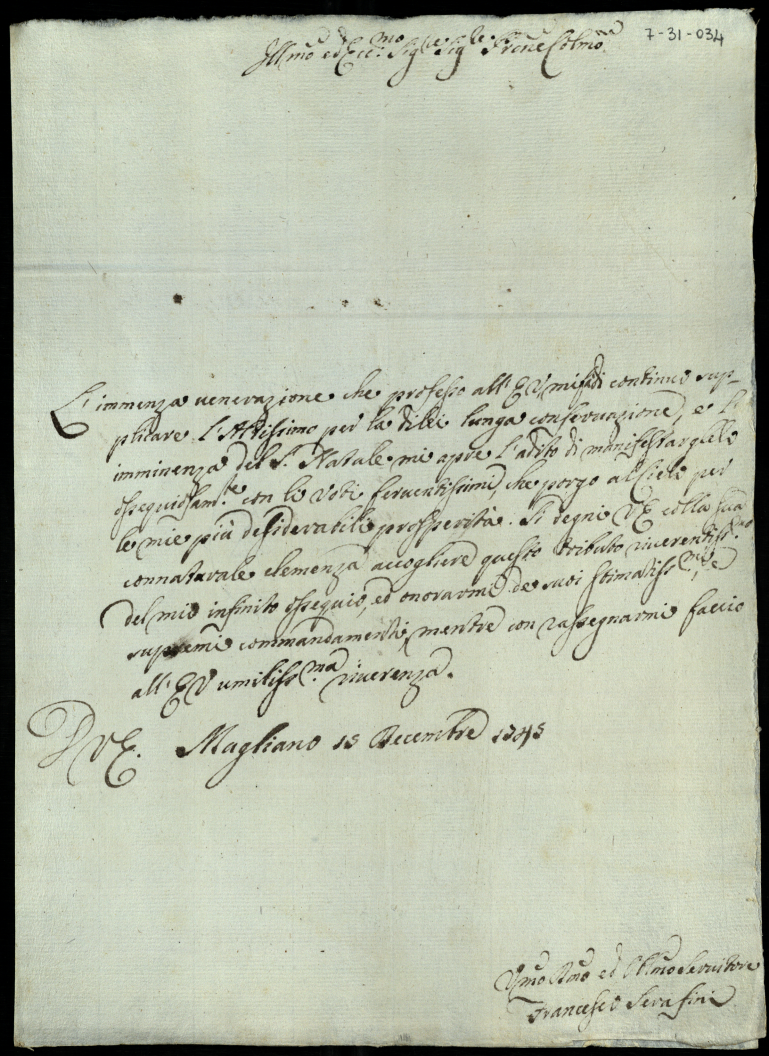 7-31-034
Ill.mo ed Ecc.mo Sig.re Sig.re Prone Colmo
L'immenza venerazione che professo all'E V, mi fà di continuo sup-
plicare l'Altissimo per la di lei lunga conservazione, e l'
imminenza del S. Natale mi apre l'adito di manifestarglele
ossequiosam.te con li voti ferventissimi, che porgo al Cielo per
le mie più desiderabili prosperità. Si degni V E colla sua
connaturale clemenza accogliere questo tributo riverentiss.mo
del mio infinito ossequio, ed onorarmi de suoi stimatiss.mi, e
supremi commandamenti, mentre con rassegnarmi faccio
all'E V umiliss.ma riverenza.
D V E. Magliano 15 Decembre 1745
Umo Dmo ed Obbmo Servitore
Francesco Serafini